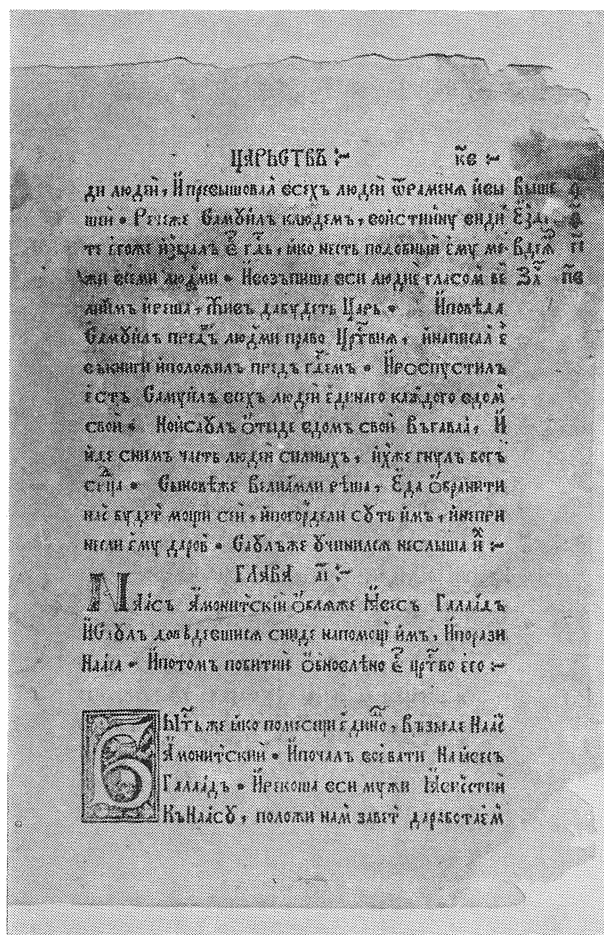 ЦАРЬСТВЪ :~ к҃е :~
ди людей, И҆превышовал всехъ людей ѿраменя ивы Выше
шей • Речеже Самуил клюдем, воистинну види
те егоже избрал е҃ гдь, ико несть подобный ему ме
жи всеми людми • Ивозъпиша вси людие гласом ве
ликим иреша, Живъ дабудеть Царь • Иповѣда
Самуилъ предъ людми право Црт҃виѧ, инаписал е҃
въкниги иположилъ предъ гд҃емъ • Ироспустилъ
естъ Самуилъ всехъ людей единаго каждого вдом
свой • Ноисаулъ ѿтыде вдомъ свой Въгаваа, И
иде снимъ часть людей силныхъ, ихже гнулъ богъ
срд҃ца • Сыновѣже Велиамли рѣша, Еда ѡбранити
нас будет мощи сей, ипогордели суть имъ, инепри
несли ему даров • Саулъже учинилсѧ неслыша их :~
ГЛАВА а҃і :~
Наасъ Амонитский ѡблѧже Ивесъ Галаад
Исаулъ доведевшисѧ сниде напомощъ имъ, Ипорази
Нааса • Ипотомъ побитии ѡбновлено е҃ црт҃во его :~
Бы҃тъ же ико помесѧци едино, Възыде Наас
Амонитский • Ипочалъ воевати Наивес
Галаадъ • Ирекоша вси мужи Ивестии
КъНаасу, положи нам завет даработаем